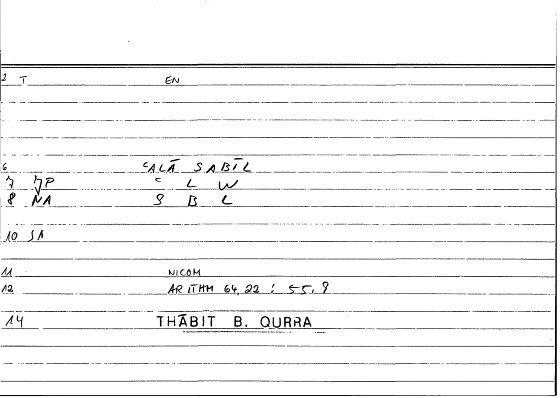 2 T EN
6 ʿALĀ SABĪL
7 JP ʿ L W
8 NA S B L
10 SA
11 NICOM
12 ARITHM 64,22 : 55,9
14 THĀBIT B. QURRA